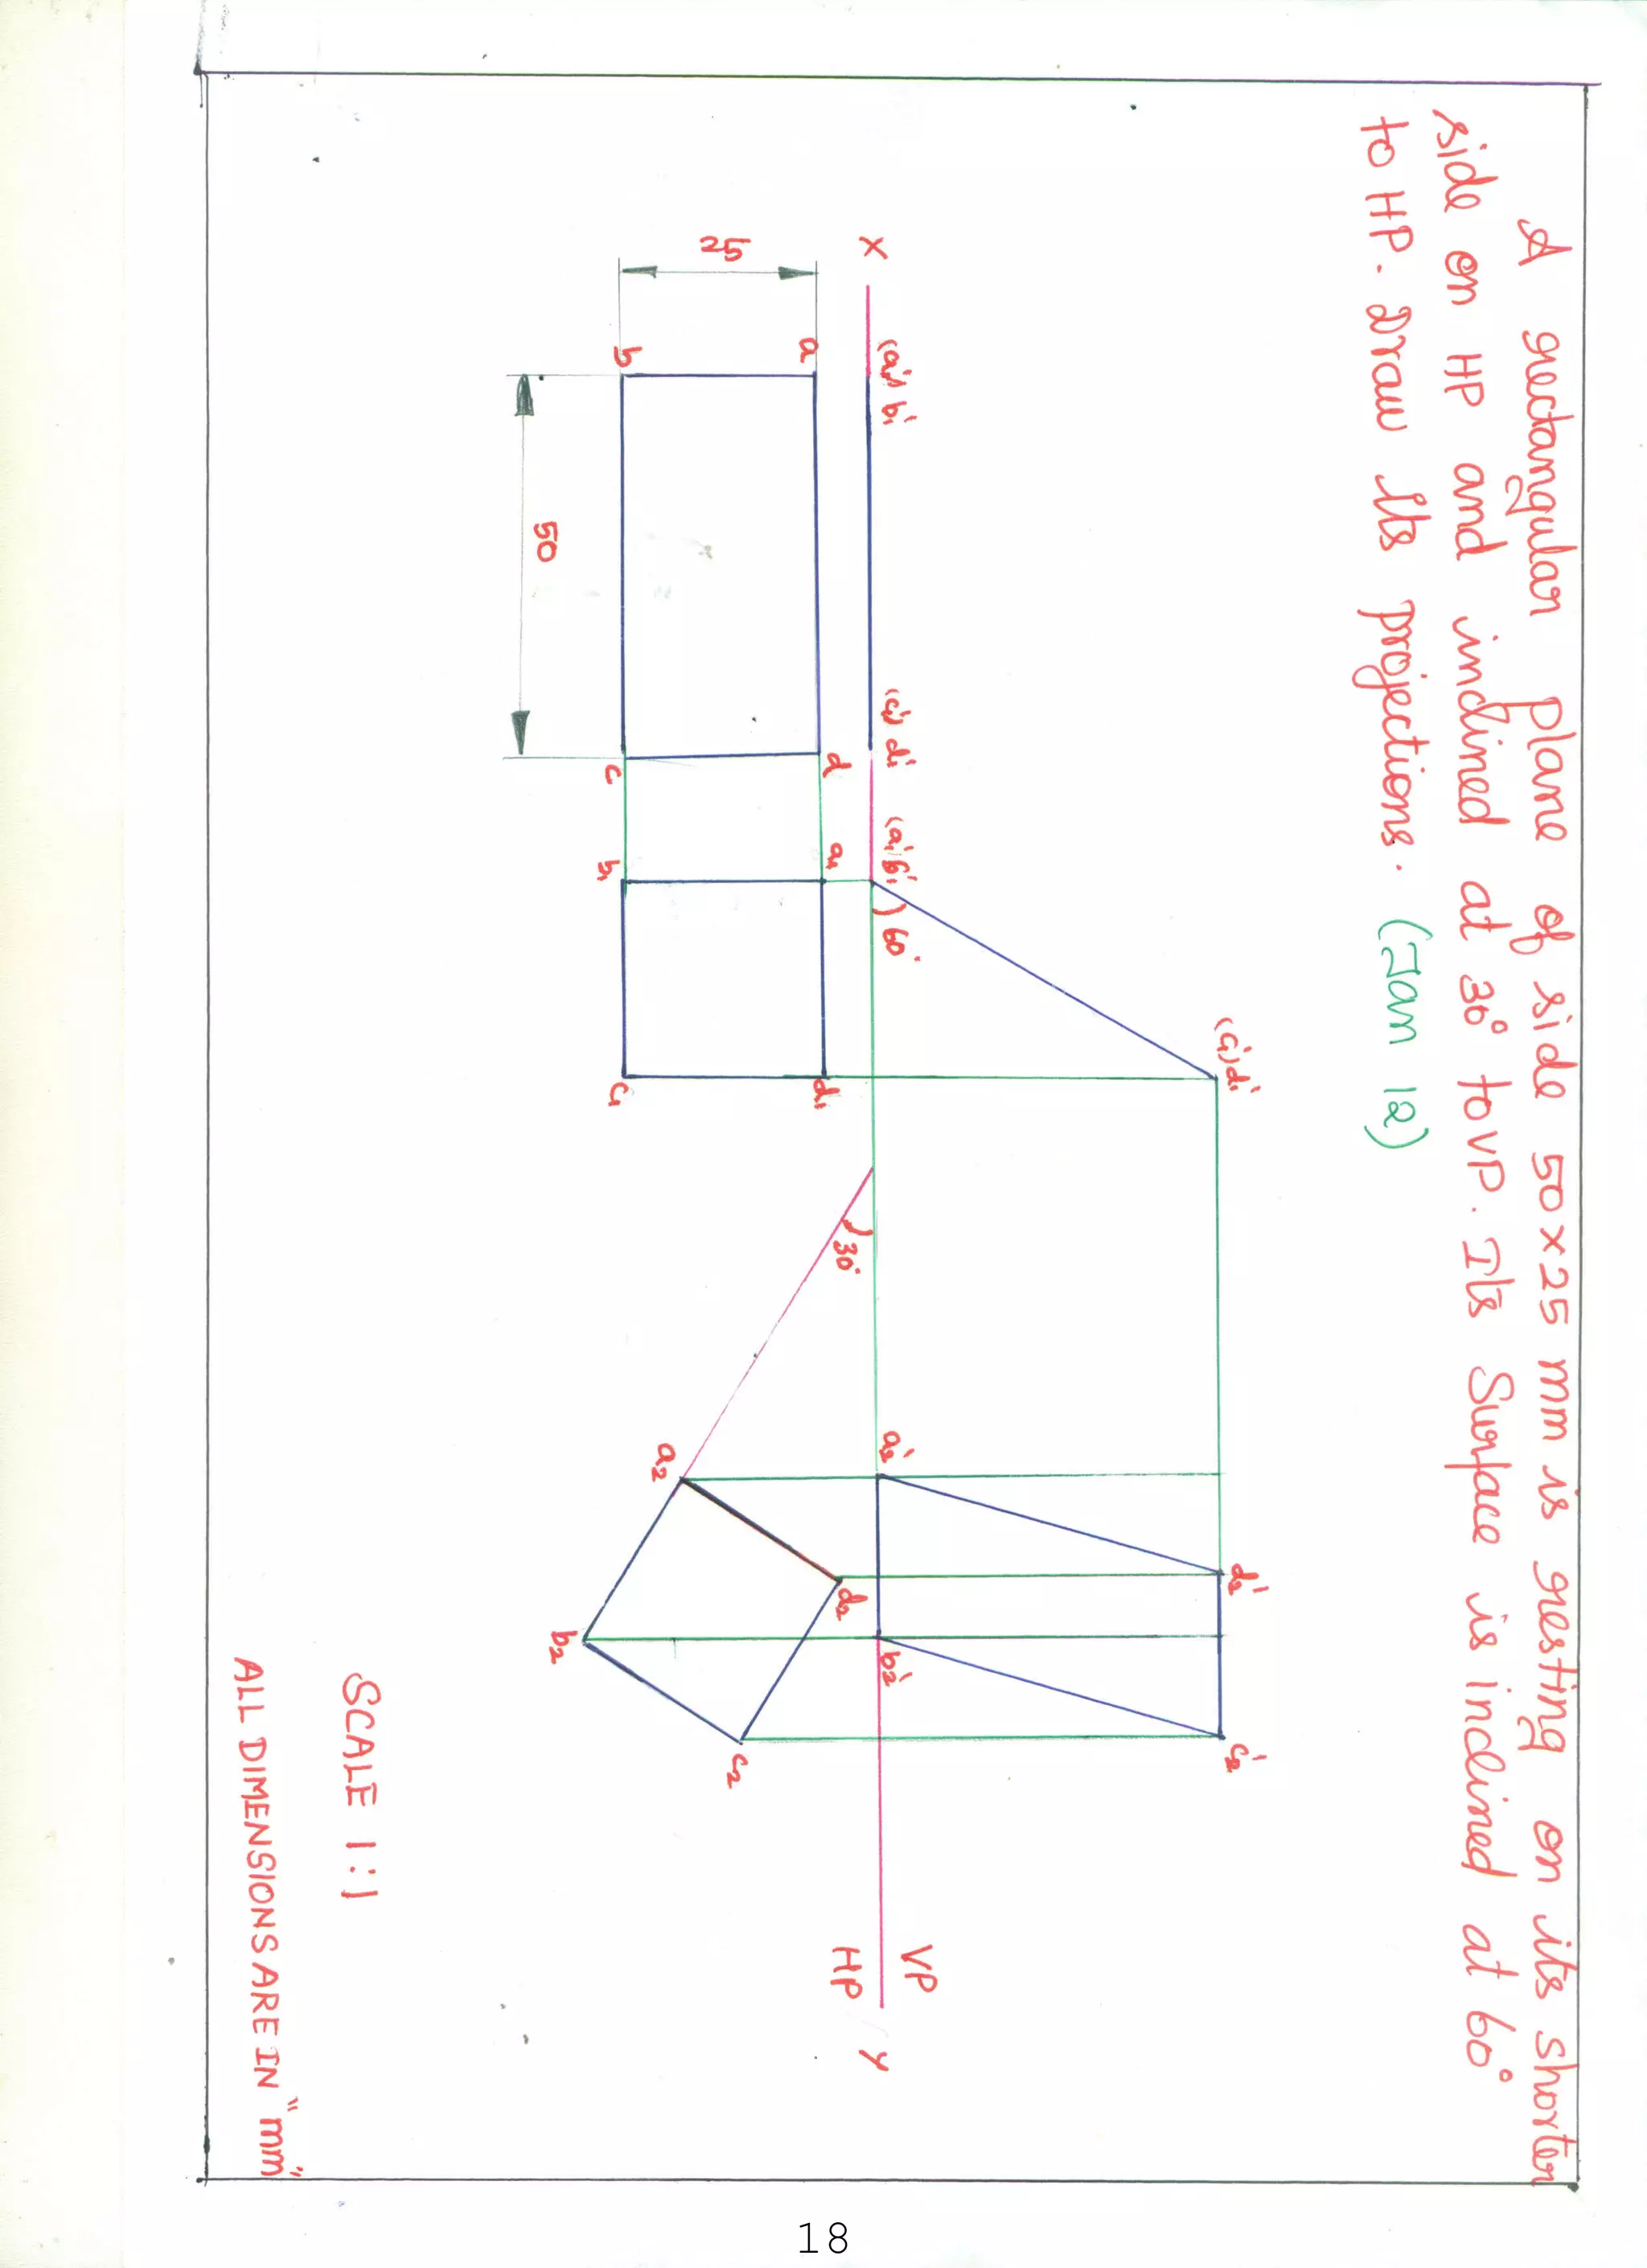 A rectangular plane of side 50x25 mm is resting on its shorter
side on HP and inclined at 30° to VP. Its Surface is inclined at 60°
to HP. Draw Its projections. (Jan 12)
(c₁') d₁'
(a₁') b₁'
(c₁') d₁'
(a₁') b₁'
60°
a₂'
b₂'
d₂'
c₂'
VP
X
Y
HP
a
d
a₁
d₁
30°
25
b
c
b₁
c₁
50
a₂
d₂
b₂
c₂
SCALE 1:1
ALL DIMENSIONS ARE IN "mm"
18